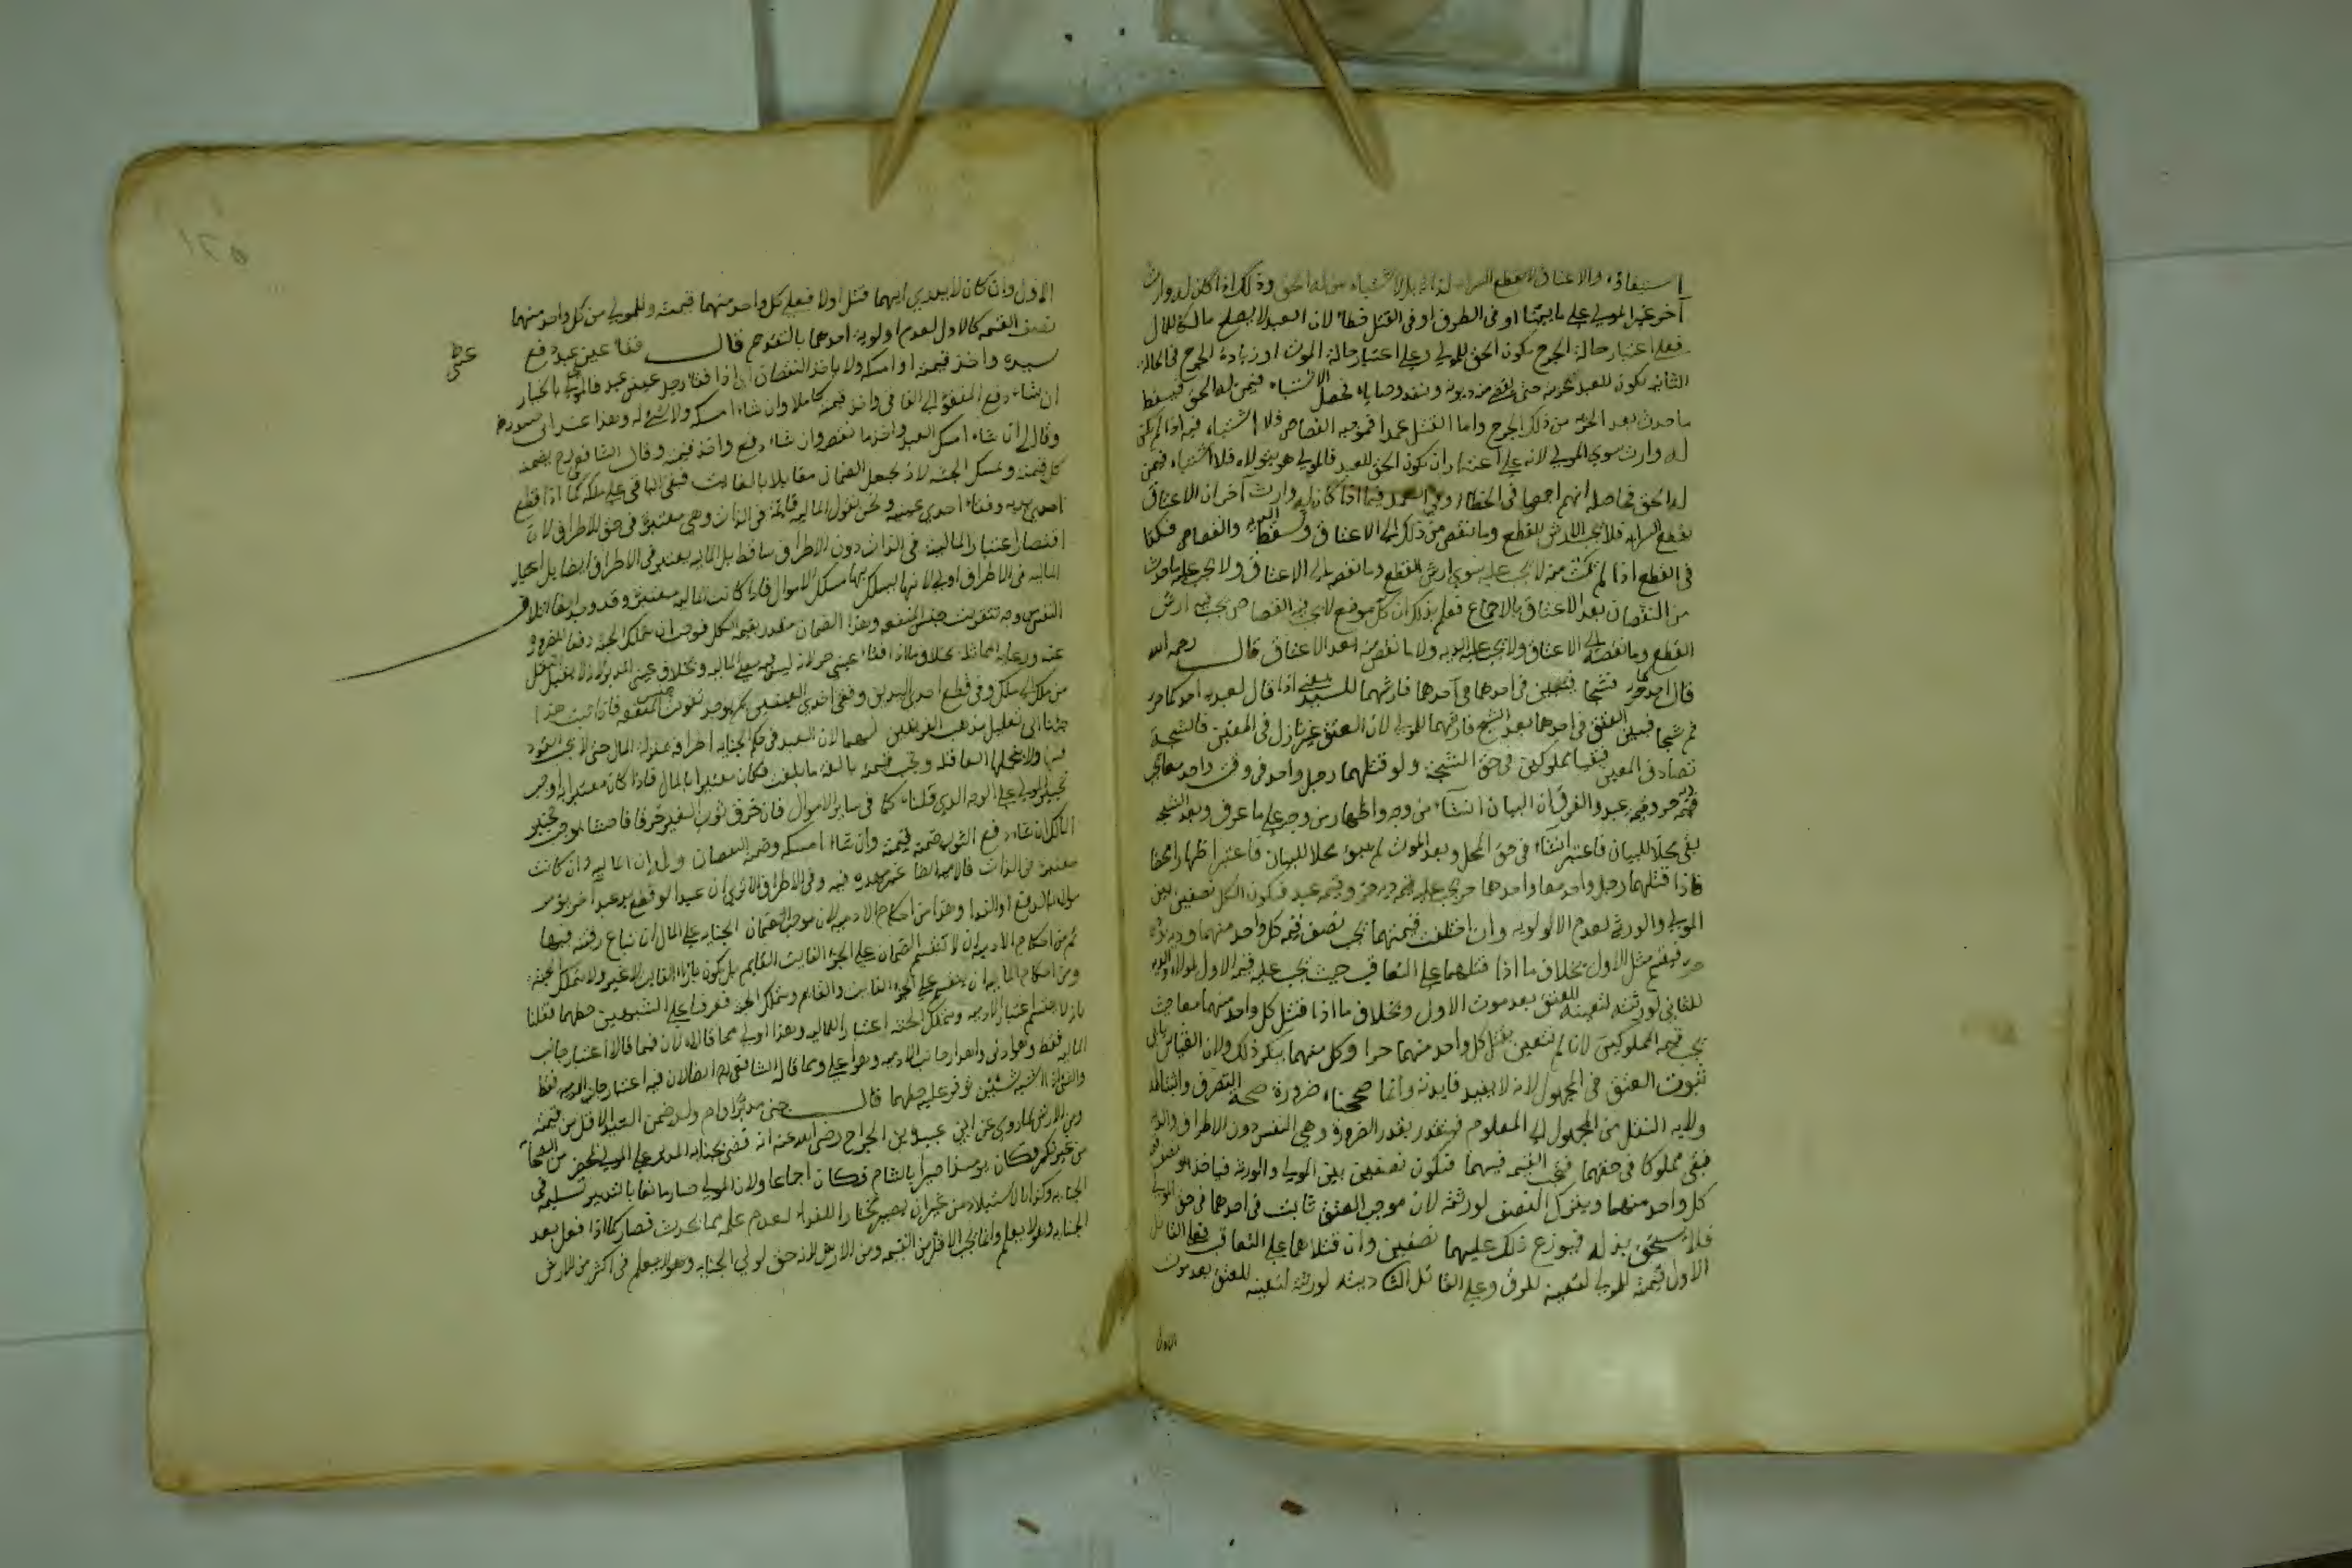 استيفاؤه والاعتاق لا يقطع السراية لذاته بل لاشتباه من له الحق وذلك اذا كان له وارث
آخر غير المولى على ما بينا او في الطرف او في القتل خطأ لان العبد لا يصلح مالكا للمال
فعلى اعتبار حالة الجرح يكون الحق للمولى وعلى اعتبار حالة الموت او زيادة الجرح في الحالة
الثانية يكون للعبد لحريته حتى يقضى منه ديونه وتنفذ وصاياه فحصل الاشتباه فيمن له الحق فيسقط
ما حدث بعد الحرية من ذلك الجرح واما القتل عمدا فموجبه القصاص فلا اشتباه فيه اذا لم يكن
له وارث سوى المولى لانه على اعتبار ان يكون الحق للعبد فالمولى هو يتولاه فلا اشتباه فيمن
له الحق فحاصله انهم اجمعوا في الخطاء وفي العمد فيما اذا كان له وارث آخر ان الاعتاق
يقطع السراية فلا يجب الا ارش القطع وما نقص من ذلك الى الاعتاق وسقط الدية والقصاص فكذا
في القطع اذا لم يمت منه لا يجب عليه سوى ارش القطع وما نقصه الى الاعتاق ولا يجب عليه ما حدث
من النقصان بعد الاعتاق بالاجماع فعلم بذلك ان كل موضع لا يجب فيه القصاص يجب فيه ارش
القطع وما نقصه الى الاعتاق ولا يجب عليه الدية ولا ما نقص منه بعد الاعتاق قال رحمه الله
قال احدكما حر فشجا فبين في احدهما فارشهما للسيد يعني اذا قال لعبديه احدكما حر
ثم شجا فبين العتق في احدهما بعد الشج فارشهما للمولى لان العتق غير نازل في المعين فالشجة
تصادف المعين فبقيا مملوكين في حق الشجة ولو قتلهما رجل واحد في وقت واحد معا يجب
دية حر وقيمة عبد والفرق ان البيان انشاء من وجه واظهار من وجه على ما عرف وبعد الشجة
بقي محلا للبيان فاعتبر انشاء في حق المحل وبعد الموت لم يبق محلا للبيان فاعتبر اظهارا محضا
فاذا قتلهما رجل واحد معا واحدهما حر يجب عليه قيمة عبد ودية حر فيكون الكل نصفين بين
المولى والورثة لعدم الاولوية وان اختلفت قيمتهما يجب نصف قيمة كل واحد منهما ودية
حر فيقسم مثل الاول بخلاف ما اذا قتلهما على التعاقب حيث يجب عليه قيمة الاول لمولاه والدية
للثاني لورثته لتعينه للعتق بعد موت الاول وبخلاف ما اذا قتل كل واحد منهما معا حيث
يجب قيمة المملوكين لانا لم نتيقن بقتل كل واحد منهما حرا وكل منهما ينكر ذلك ولان القياس يأبى
ثبوت العتق في المجهول لانه لا يفيد فايدته وانما صححناه ضرورة صحة التصرف واثبتنا له
ولاية النقل من المجهول الى المعلوم فيتقدر بقدر الضرورة وهي النفس دون الاطراف والدية
فبقي مملوكا في حقهما فتجب القيمة فيهما فتكون نصفين بين المولى والورثة فياخذ هو نصف قيمة
كل واحد منهما ويترك النصف لورثته لان موجب العتق ثابت في احدهما في حق المولى
فلا يستحق بدله فيوزع ذلك عليهما نصفين وان قتلاهما على التعاقب فعلى القاتل
الاول قيمته للمولى لتعينه للرق وعلى القاتل الثاني ديته لورثته لتعينه للعتق بعد موت
الاول
١٢٥
الاول وان كان لا يدري ايهما قتل اولا فعلى كل واحد منهما قيمته وللمولى من كل واحد منهما
نصف القيمة كالاول لعدم اولوية احدهما بالتقدم قال فقأ عيني عبد دفع
سيده واخذ قيمته او امسكه ولا ياخذ النقصان اي اذا فقأ رجل عيني عبد فالمولى بالخيار
ان شاء دفع العبد المفقوء الى الفاقئ واخذ قيمته كاملا وان شاء امسكه ولا شئ له وهذا عند ابي حنيفة
وقالا ان شاء امسك العبد واخذ ما نقصه وان شاء دفع واخذ قيمته وقال الشافعي رح يضمنه
كل قيمته ويمسك الجثة لانه يجعل الضمان مقابلا بالفائت فبقي الباقي على ملكه كما اذا قطع
احدى يديه وفقأ احدى عينيه ونحن نقول المالية قائمة في الذات وهي معتبرة في حق الاطراف لان
اقتصار اعتبار المالية في الذات دون الاطراف ساقط بل المالية يعتبر في الاطراف ايضا بل اعتبار
المالية في الاطراف اولى لانها يسلك بها مسلك الاموال فاذا كانت المالية معتبرة وقد وجد ايضا اتلاف
النفس من وجه بتفويت جنس المنفعة وهذا الضمان مقدر بقيمة الكل فوجب ان يتملك الجثة دفعا للضرر
عنه ورعاية للمماثلة بخلاف ما اذا فقأ عيني حر لانه ليس فيه معنى المالية وبخلاف عيني المدبر لانه لا يقبل النقل
من ملك الى ملك وفي قطع احدى اليدين وفقأ احدى العينين لم يوجد تفويت جنس المنفعة فاذا ثبت هذا
جئنا الى تعليل مذهب الفريقين لهما ان العبد في حكم الجناية اطرافه بمنزلة المال حتى لا يجب القود
فيها ولا تتحملها العاقلة وتجب قيمته بالغة ما بلغت فكان معتبرا بالمال فاذا كان معتبرا به وجب
تخيير المولى على الوجه الذي قلناه كما في سائر الاموال فان خرق ثوب الغير خرقا فاحشا يوجب تخيير
المالك ان شاء دفع الثوب وضمنه قيمته وان شاء امسكه وضمنه النقصان وله ان المالية وان كانت
معتبرة في الذات فالآدمية ايضا غير مهدرة فيه وفي الاطراف الا ترى ان عبدا لو قطع يد عبد آخر يؤمر
مولاه بالدفع او الفداء وهذا من احكام الآدمية لان موجب الجناية على المال ان تباع رقبته فيها
ثم من احكام الآدمية ان لا ينقسم الضمان على الجزء الفائت والقائم بل يكون بازاء الفائت لا غير ولا يتملك الجثة
ومن احكام المالية ان ينقسم على الجزء الفائت والقائم ويتملك الجثة فوفرنا على الشبهين حظهما فقلنا
بانه لا ينقسم اعتبارا للآدمية ويتملك الجثة اعتبارا للمالية وهذا اولى مما قالاه لان فيما قالا اعتبار جانب
المالية فقط وهو ادنى واهدار جانب الآدمية وهو اعلى ومما قاله الشافعي رح ايضا لان فيه اعتبار جانب الآدمية فقط
والشئ اذا اشبه شيئين يوفر عليه حظهما قال جنى مدبر او ام ولد ضمن السيد الاقل من قيمته
ومن الارش لما روي عن ابي عبيدة بن الجراح رضي الله عنه انه قضى بجناية المدبر على المولى بمحضر من الصحابة
من غير نكير وكان يومئذ اميرا بالشام فكان اجماعا ولان المولى صار مانعا بالتدبير تسليمه في
الجناية وكذا بالاستيلاد من غير ان يصير مختارا للفداء لعدم علمه بما يحدث فصار كما اذا فعل بعد
الجناية وهو لا يعلم وانما يجب الاقل من القيمة ومن الارش لانه لا حق لولي الجناية في اكثر من الارش